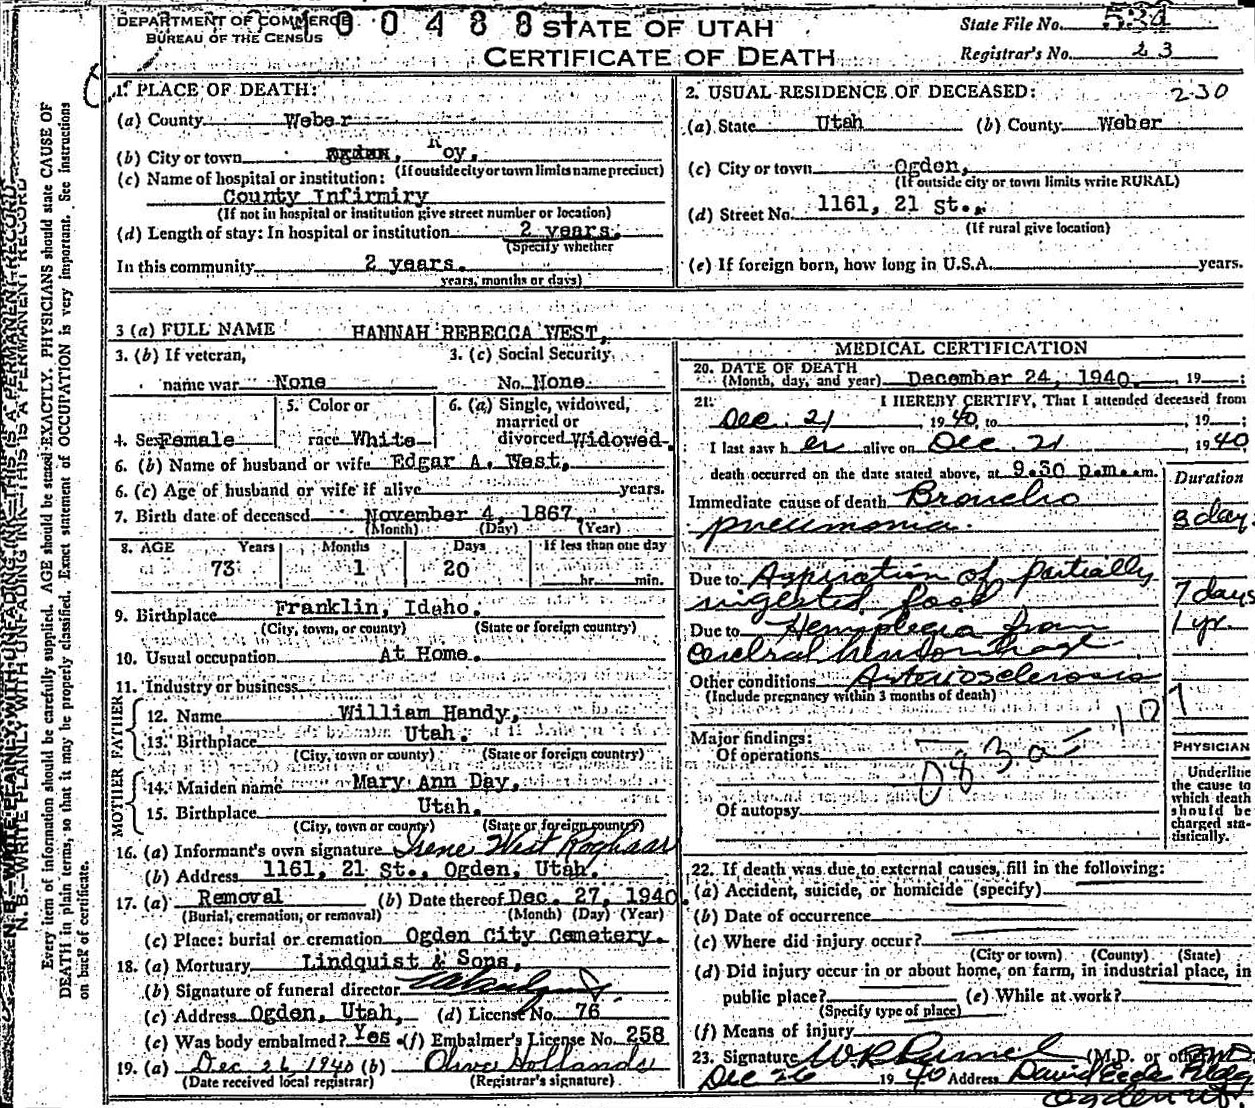 DEPARTMENT OF COMMERCE
BUREAU OF THE CENSUS
100488
STATE OF UTAH
CERTIFICATE OF DEATH
State File No. 532
Registrar's No. 23
1. PLACE OF DEATH:
(a) County Weber
(b) City or town Ogden, Roy.
(If outside city or town limits name precinct)
(c) Name of hospital or institution:
County Infirmiry
(If not in hospital or institution give street number or location)
(d) Length of stay: In hospital or institution 2 years.
(Specify whether
In this community 2 years.
years, months or days)
2. USUAL RESIDENCE OF DECEASED: 230
(a) State Utah (b) County Weber
(c) City or town Ogden,
(If outside city or town limits write RURAL)
(d) Street No. 1161, 21 St.,
(If rural give location)
(e) If foreign born, how long in U.S.A. years.
3 (a) FULL NAME HANNAH REBECCA WEST,
3. (b) If veteran, name war None
3. (c) Social Security No. None
4. Sex Female
5. Color or race White
6. (a) Single, widowed, married or divorced Widowed.
6. (b) Name of husband or wife Edgar A. West,
6. (c) Age of husband or wife if alive years.
7. Birth date of deceased November 4, 1867,
(Month) (Day) (Year)
8. AGE Years Months Days If less than one day
73 1 20 hr. min.
9. Birthplace Franklin, Idaho.
(City, town, or county) (State or foreign country)
10. Usual occupation At Home.
11. Industry or business
FATHER
12. Name William Handy,
13. Birthplace Utah.
(City, town or county) (State or foreign country)
MOTHER
14. Maiden name Mary Ann Day,
15. Birthplace Utah.
(City, town or county) (State or foreign country)
16. (a) Informant's own signature Irene West Roghaar
(b) Address 1161, 21 St., Ogden, Utah.
17. (a) Removal (b) Date thereof Dec. 27, 1940.
(Burial, cremation, or removal) (Month) (Day) (Year)
(c) Place: burial or cremation Ogden City Cemetery.
18. (a) Mortuary Lindquist & Sons,
(b) Signature of funeral director
(c) Address Ogden, Utah, (d) License No. 76
(e) Was body embalmed? Yes (f) Embalmer's License No. 258
19. (a) Dec 26 1940 (b)
(Date received local registrar) (Registrar's signature)
MEDICAL CERTIFICATION
20. DATE OF DEATH
(Month, day, and year) December 24, 1940. 19 ;
21. I HEREBY CERTIFY, That I attended deceased from
Dec. 21 1940, to , 19 ;
I last saw her alive on Dec 21 1940,
death occurred on the date stated above, at 9.30 p.m. m.
Duration
Immediate cause of death Broncho
pneumonia. 3 day.
Due to Aspiration of partially
ingested food 7 days
Due to Hemiplegia from 1 yr.
cerebral hemorrhage
Other conditions Arteriosclerosis
(Include pregnancy within 3 months of death)
107
Major findings:
Of operations 0830
Of autopsy
PHYSICIAN
Underline
the cause to
which death
should be
charged sta-
tistically.
22. If death was due to external causes, fill in the following:
(a) Accident, suicide, or homicide (specify)
(b) Date of occurrence
(c) Where did injury occur?
(City or town) (County) (State)
(d) Did injury occur in or about home, on farm, in industrial place, in
public place? (e) While at work?
(Specify type of place)
(f) Means of injury
23. Signature (M.D. or other) MD
Dec 26 1940 Address David Eccles Bldg
Ogden Ut.
N. B.—WRITE PLAINLY WITH UNFADING INK—THIS IS A PERMANENT RECORD
Every item of information should be carefully supplied. AGE should be stated EXACTLY. PHYSICIANS should state CAUSE OF
DEATH in plain terms, so that it may be properly classified. Exact statement of OCCUPATION is very important. See instruction
on back of certificate.